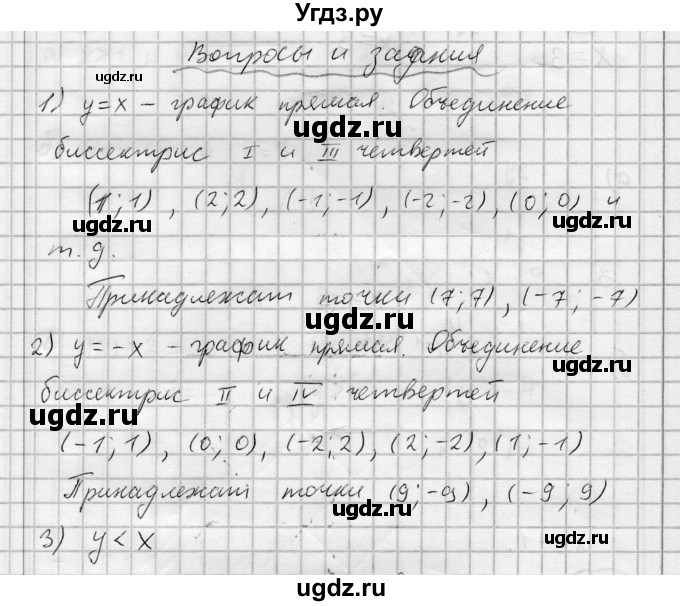 Угдз.ру
Вопросы и задания
ugdz.ru
1) y=x – график прямая. Объединение
ugdz.ru ugdz.ru
биссектрис I и III четвертей
ugdz.ru
(1; 1), (2; 2), (-1; -1), (-2; -2), (0; 0) и
ugdz.ru ugdz.ru
т. д.
Принадлежат точки (7; 7), (-7; -7)
ugdz.ru
2) y = -x – график прямая. Объединение
ugdz.ru ugdz.ru
биссектрис II и IV четвертей
ugdz.ru ugdz.ru
(-1; 1), (0; 0), (-2; 2), (2; -2), (1; -1)
ugdz.ru
Принадлежат точки (9; -9), (-9; 9)
ugdz.ru ugdz.ru
3) y < x
ugdz.ru ugdz.ru
ugdz.ru